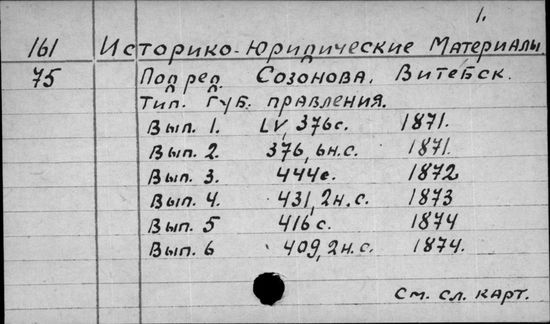 1.
161 Историко-Юридические Материалы
75 Под ред. Созонова. Витебск.
Тип. Губ. правления.
Вып. 1. LV, 376 с. 1871.
Вып. 2. 376, 6н.с. 1871.
Вып. 3. 444 с. 1872
Вып. 4. 431, 2н.с. 1873
Вып. 5 416 с. 1874
Вып. 6 409, 2н.с. 1874.
См. сл. карт.